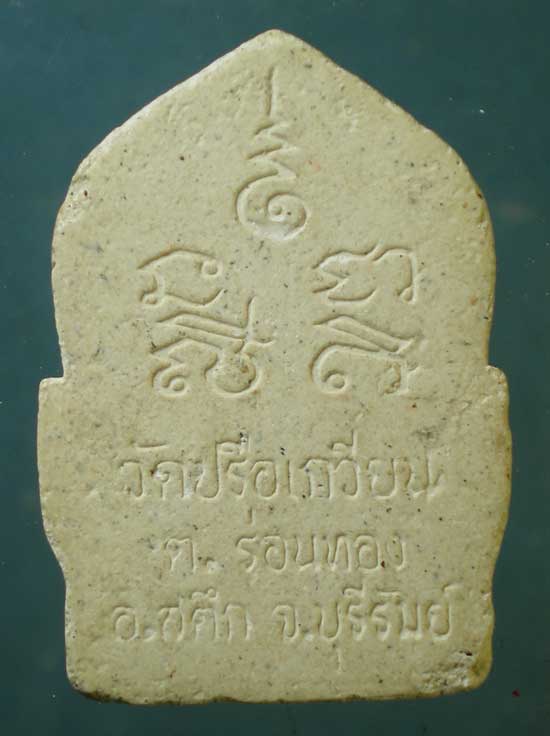 วัดปรือเกวียน
ต. ร่อนทอง
อ.สตึก จ.บุรีรัมย์